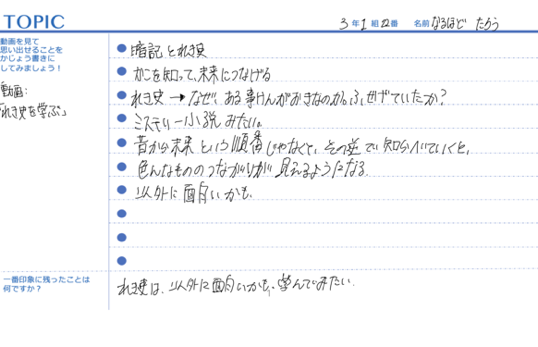 TOPIC
3年1組22番 名前 なるほど たろう
動画を見て
思い出せることを
かじょう書きに
してみましょう!
動画:
「れき史を学ぶ」
暗記とれき史
かこを知って、未来につなげる
れき史→なぜ、ある事けんがおきたのか。ふせげていたか?
ミステリー小説みたい。
昔から未来という順番じゃなくて、その逆で
色んなもののつながりが見えるようになる。
以外に面白いかも。
一番印象に残ったことは
何ですか?
れき史は、以外に面白いかも、学んでみたい。